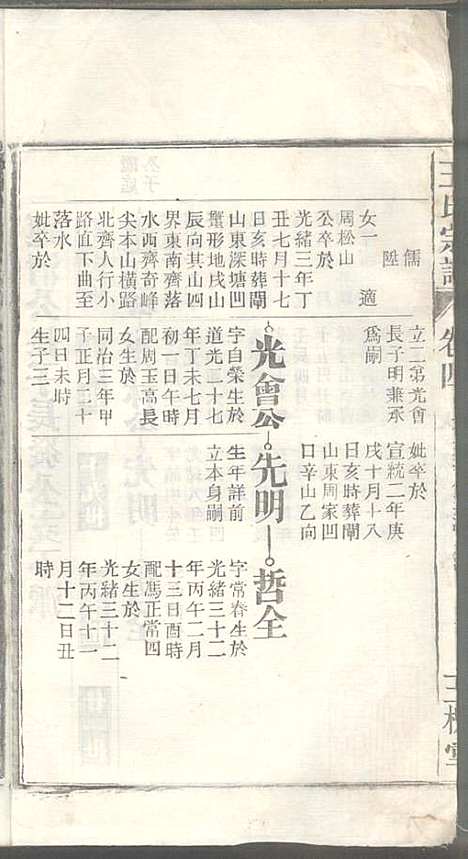 王氏宗譜
卷四
三槐堂
儒
陞
女一 適
周松山
公卒於
光緒三年丁
丑七月十七
日亥時葬閘
山東深塘凹
蟹形地戌山
辰向其山四
界東南齊落
水西齊奇峰
尖本山橫路
北齊人行小
路直下曲至
落水
妣卒於
立二第光會
長子明兼承
爲嗣
妣卒於
宣統二年庚
戌十月十八
日亥時葬閘
山東周家凹
口辛山乙向
光會公
先明
哲全
字自榮生於
道光二十七
年丁未七月
初一日午時
配周玉高長
女生於
同治三年甲
子正月二十
四日未時
生子三
生年詳前
立本身嗣四
字常春生於
光緒三十二
年丙午二月
十三日酉時
配馮正常四
女生於
光緒三十二
年丙午十一
月十二日丑
時